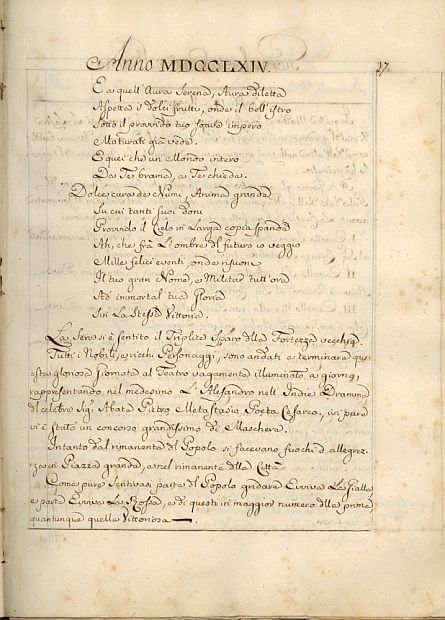 Anno MDCCLXIV.
27
E a quell' Aura Serena, Aura diletta
Aspetta i dolci frutti, onde il bell' istro
Sotto il provvido tuo soave impero
Maturati già vede.
E quei che un Mondo intero
Da Te brama, a Te chiede.
Dolce cura de Numi, Anima grande
Su cui tanti suoi doni
Provvido il Cielo in Larga copia spande
Ah, che frà L'ombre dl futuro io veggio
Mille felici eventi, onde risuone
Il tuo gran Nome, e Militar tutt' ora
Ad immortal tua Gloria
Sin La Stessa Vittoria.
La Sera si è sentito il Triplice Sparo dlla Fortezza vecchia.
Tutti i Nobili, e ricchi Personaggi, sono andati a terminare que-
sta gloriosa giornata al Teatro vagamente illuminato, a giorno,
rappresentando nel medesimo L'Alessandro nell' Indie Dramma
dl celebre Sigr. Abate Pietro Metastasio Poeta Cesareo, ivi pure
vi è stato un concorso grandissimo di Maschere.
Intanto dal rimanente del Popolo si facevano fuochi d'allegrez-
za in Piazza grande, e nel rimanente dlla Città
Come pure Sentivasi parte dl Popolo gridare Evviva La Gialla
e parte Evviva La Rossa, e di questi in maggior numero dlla prima,
quantunque quella Vittoriosa